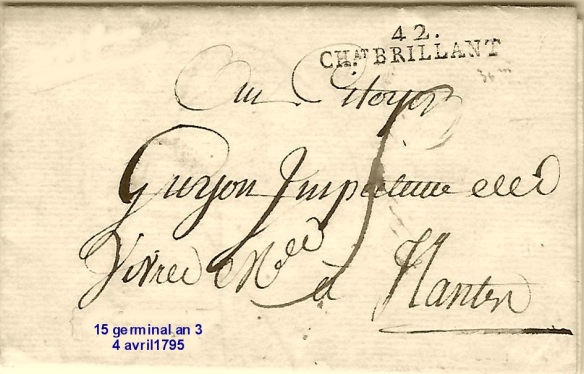 42.
CHAT BRILLANT
Au Citoyen
Guyon Inspecteur des
Vivres
à Nantes
15 germinal an 3
4 avril1795